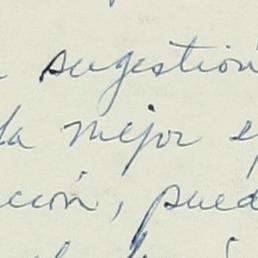 sugestión
la mejor e
ción, pued